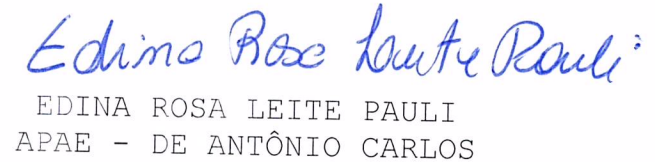 Edina Rosa Leite Pauli
EDINA ROSA LEITE PAULI
APAE - DE ANTÔNIO CARLOS